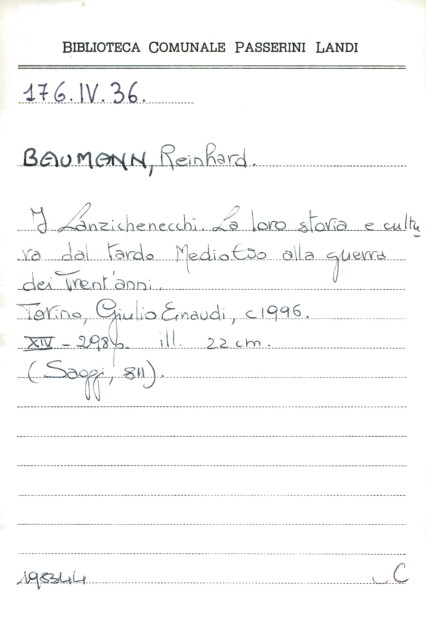 BIBLIOTECA COMUNALE PASSERINI LANDI
176.IV.36.
BAUMANN, Reinhard.
I Lanzichenecchi. La loro storia e cultu
ra dal tardo Medioevo alla guerra
dei Trent'anni.
Torino, Giulio Einaudi, c1996.
XIV - 298 p. ill. 22 cm.
(Saggi, 811).
198344 C